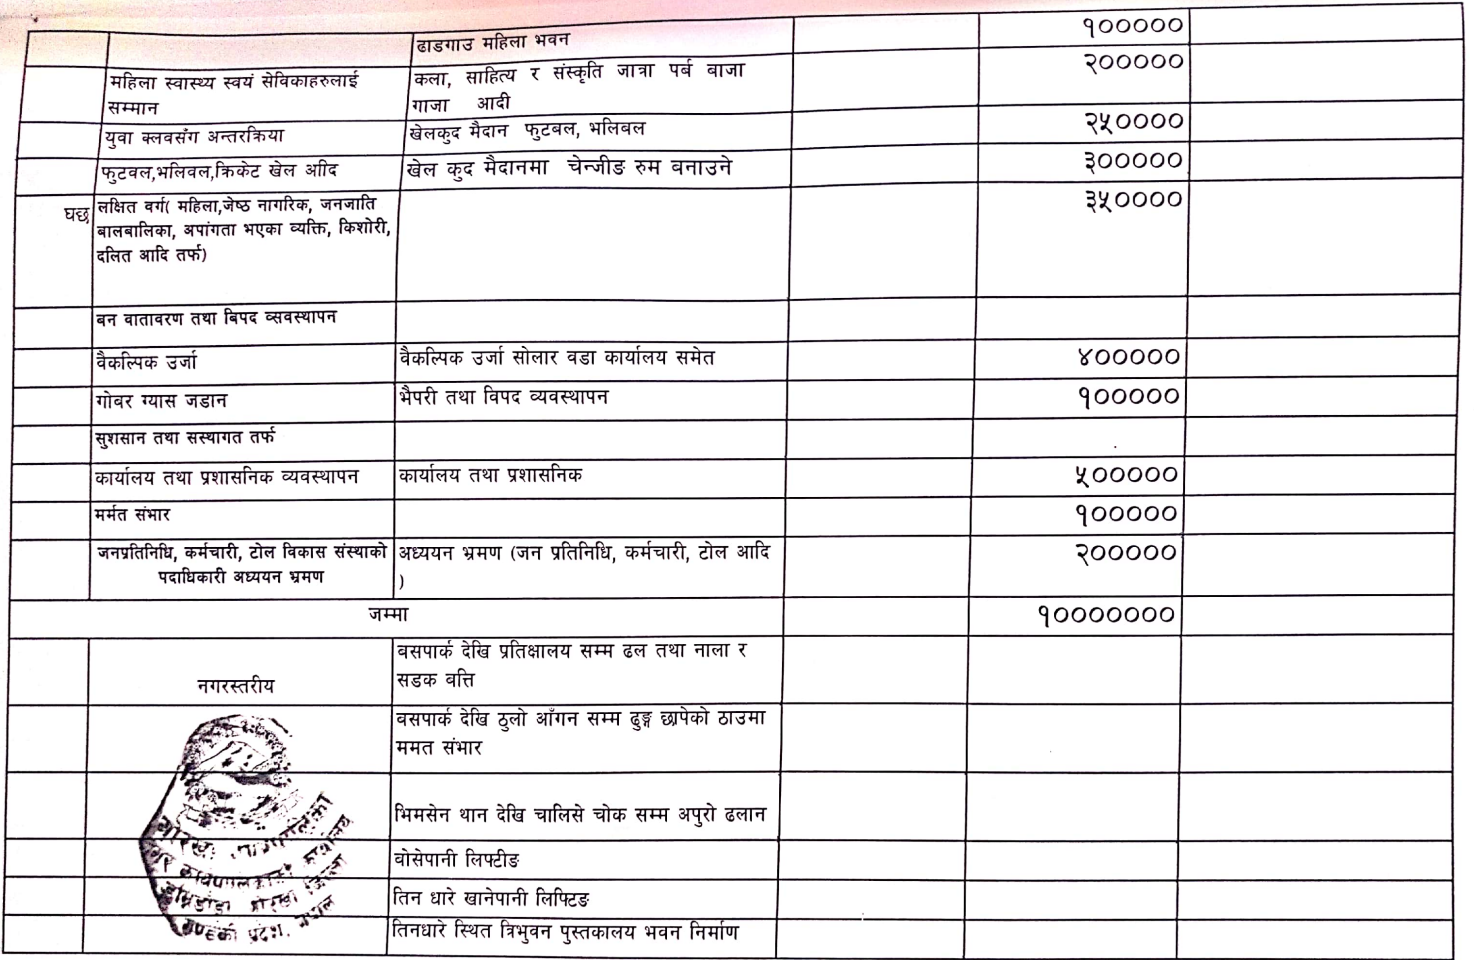 ढाडगाउ महिला भवन १०००००
महिला स्वास्थ्य स्वयं सेविकाहरुलाई सम्मान कला, साहित्य र संस्कृति जात्रा पर्ब बाजा गाजा आदी २०००००
युवा क्लवसँग अन्तरक्रिया खेलकुद मैदान फुटबल, भलिबल २५००००
फुटवल,भलिवल,क्रिकेट खेल आीद खेल कुद मैदानमा चेन्जीङ रुम बनाउने ३०००००
घछ लक्षित वर्ग( महिला,जेष्ठ नागरिक, जनजाति ३५००००
बालबालिका, अपांगता भएका व्यक्ति, किशोरी,
दलित आदि तर्फ)
बन वातावरण तथा बिपद व्सवस्थापन
वैकल्पिक उर्जा वैकल्पिक उर्जा सोलार वडा कार्यालय समेत ४०००००
गोवर ग्यास जडान भैपरी तथा विपद व्यवस्थापन १०००००
सुशसान तथा सस्थागत तर्फ
कार्यालय तथा प्रशासनिक व्यवस्थापन कार्यालय तथा प्रशासनिक ५०००००
मर्मत संभार १०००००
जनप्रतिनिधि, कर्मचारी, टोल विकास संस्थाको पदाधिकारी अध्ययन भ्रमण अध्ययन भ्रमण (जन प्रतिनिधि, कर्मचारी, टोल आदि ) २०००००
जम्मा १०००००००
नगरस्तरीय वसपार्क देखि प्रतिक्षालय सम्म ढल तथा नाला र
सडक वत्ति
वसपार्क देखि ठुलो आँगन सम्म ढुङ्ग छापेको ठाउमा
ममत संभार
भिमसेन थान देखि चालिसे चोक सम्म अपुरो ढलान
वोसेपानी लिफ्टीङ
तिन धारे खानेपानी लिफ्टिङ
तिनधारे स्थित त्रिभुवन पुस्तकालय भवन निर्माण